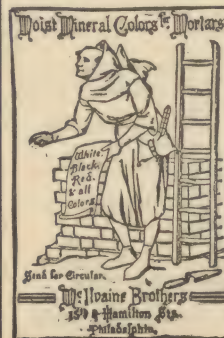 Moist Mineral Colors for Mortars
White,
Black,
Red,
& all
Colors
Send for Circular.
McIlvaine Brothers
Hamilton Sts.
Philadelphia.